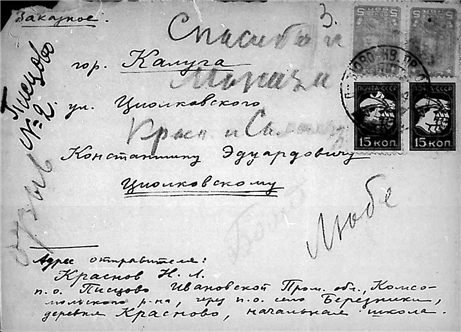 Заказное.
3.
Спасибо и
гор. Калуга
ул. Циолковского
Константину Эдуардовичу
Циолковскому
Писцово
№ 2
отзыв
Любе
ПОЧТА СССР
15 КОП.
15 КОП.
Адрес отправителя:
Краснов Н. Л.
п.о. Писцово Ивановской Пром. обл., Комсо-
мольского р-на, чрез п.о. село Березники,
деревня Красново, начальная школа.